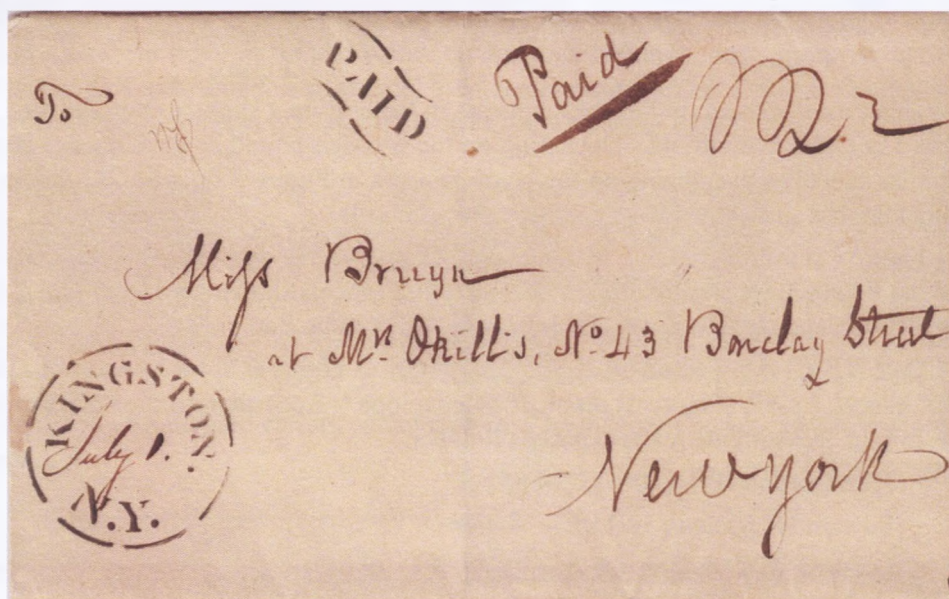 To
PAID
Paid
Miss Bruyn
at Mr. Okill's, No. 43 Barclay Street
New York
KINGSTON.
July 1.
N.Y.